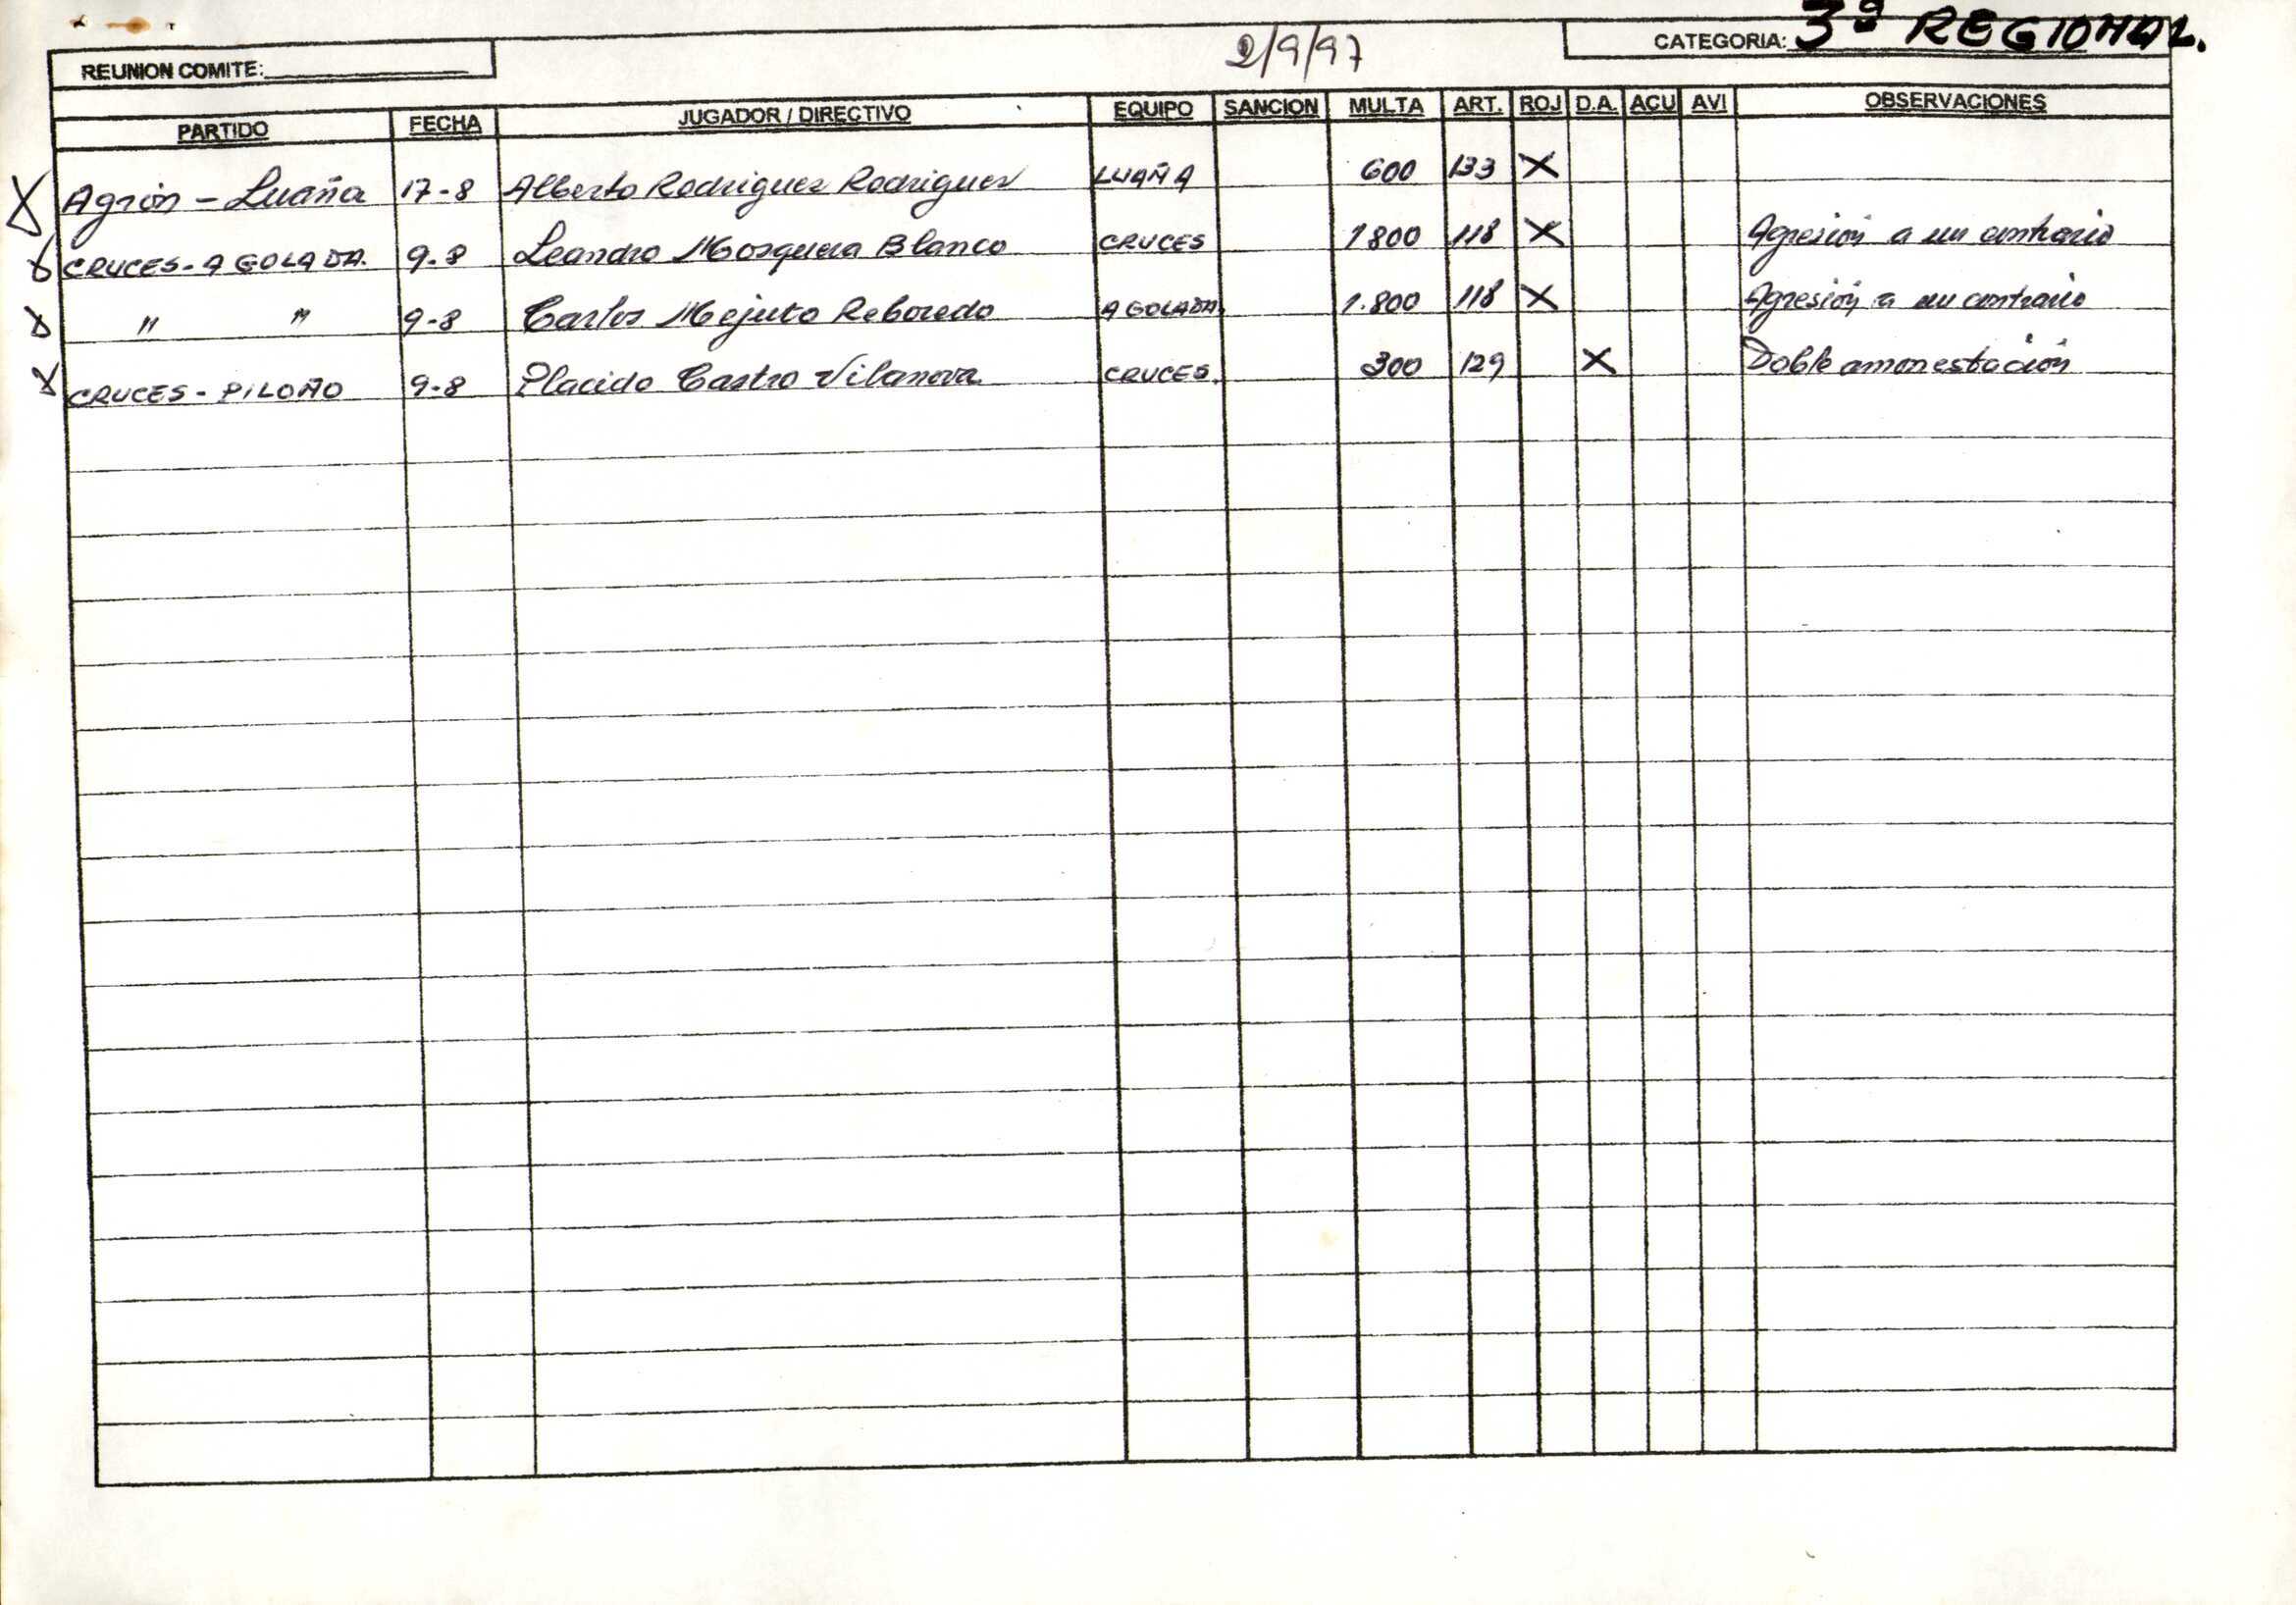 REUNION COMITE: 2/9/97 CATEGORIA: 3ª REGIONAL.
PARTIDO FECHA JUGADOR / DIRECTIVO EQUIPO SANCION MULTA ART. ROJ D.A. ACU AVI OBSERVACIONES
X Agrón - Luaña 17-8 Alberto Rodriguez Rodriguez LUAÑA 600 133 X
X CRUCES - AGOLADA. 9-8 Leandro Mosquera Blanco CRUCES 1800 118 X Agresión a un contrario
X " " 9-8 Carlos Mejuto Reboredo AGOLADA. 1.800 118 X Agresión a un contrario
X CRUCES - PILOÑO 9-8 Placido Castro Vilanova CRUCES. 300 129 X Doble amonestación